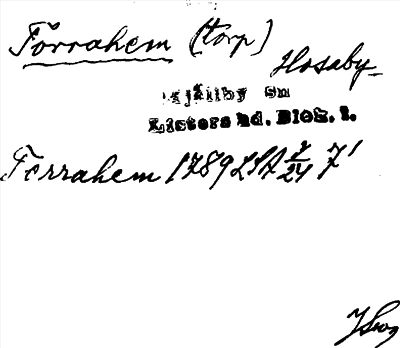 Forrahem (torp)
Hosaby
Mjällby sn
Listers hd. Blek. l.
Forrahem 1789 LSA 7/24 7'